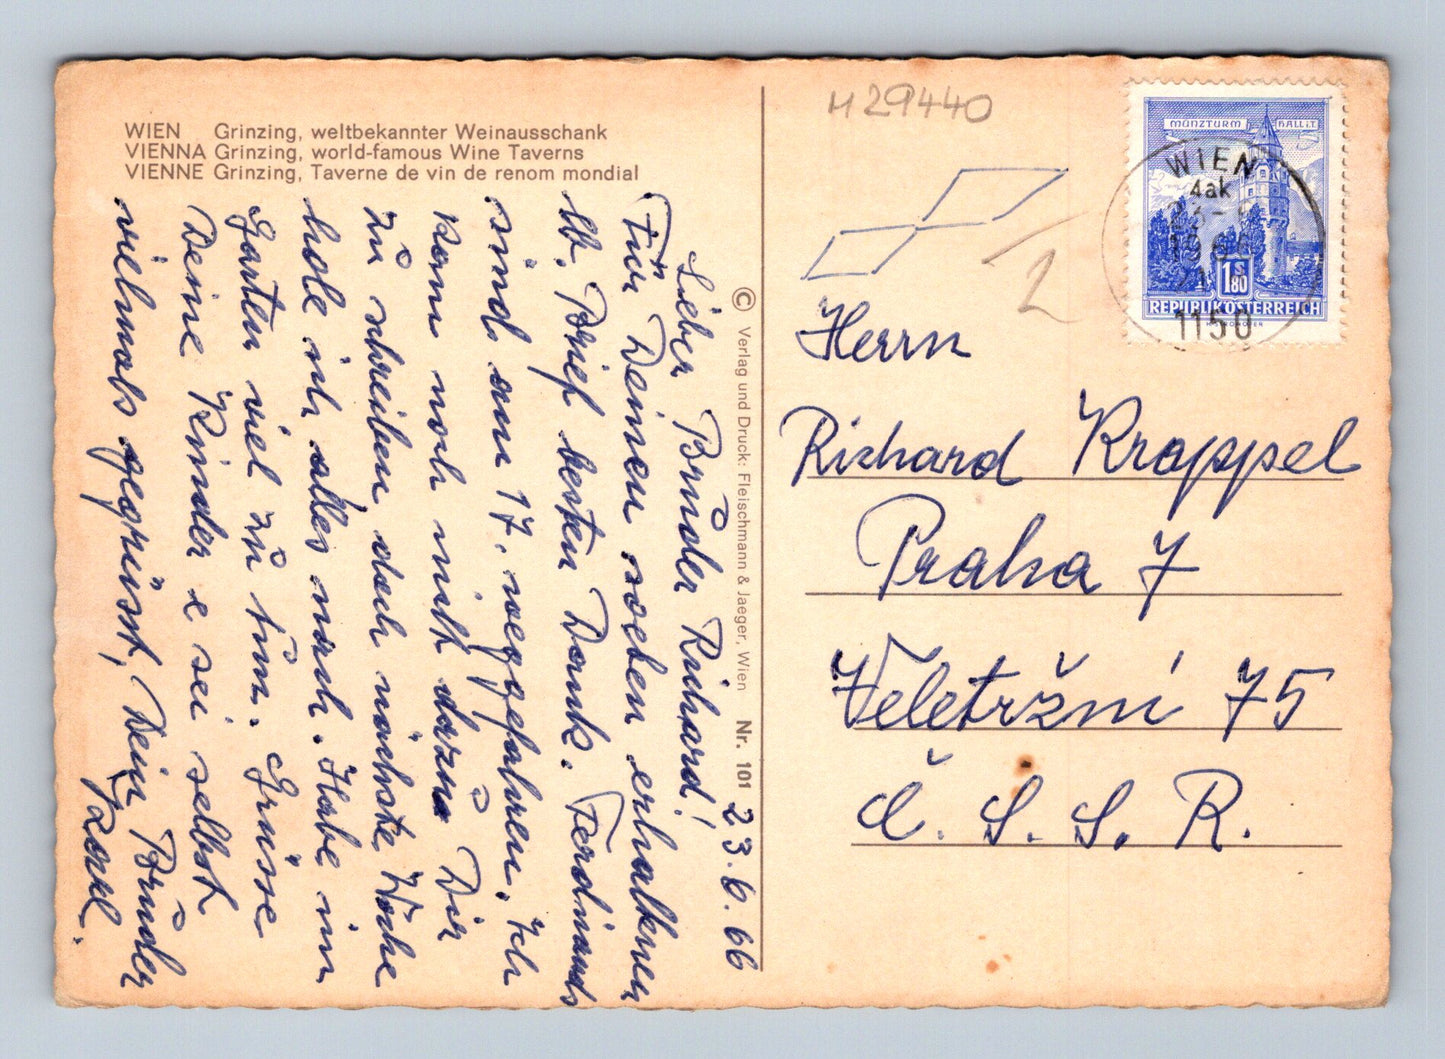 WIEN Grinzing, weltbekannter Weinausschank
VIENNA Grinzing, world-famous Wine Taverns
VIENNE Grinzing, Taverne de vin de renom mondial
23.6.66
Lieber Bruder Richard!
Für Deinen soeben erhaltenen
lb. Brief besten Dank. Ferdinands
sind am 17. weggefahren. Ich
kam noch nicht dazu Dir
zu schreiben, doch nächste Woche
hole ich alles nach. Habe im
Garten viel zu tun. Grüsse
Deine Kinder e sei selbst
vielmals gegrüsst, Dein Bruder
Karl.
© Verlag und Druck: Fleischmann & Jaeger, Wien Nr. 101
M29440
1/2
MÜNZTURM HALL i.T.
1 S 80
REPUBLIK ÖSTERREICH
WIEN
4ak
1150
Herrn
Richard Krappel
Praha 7
Veletržní 75
Č. S. S. R.